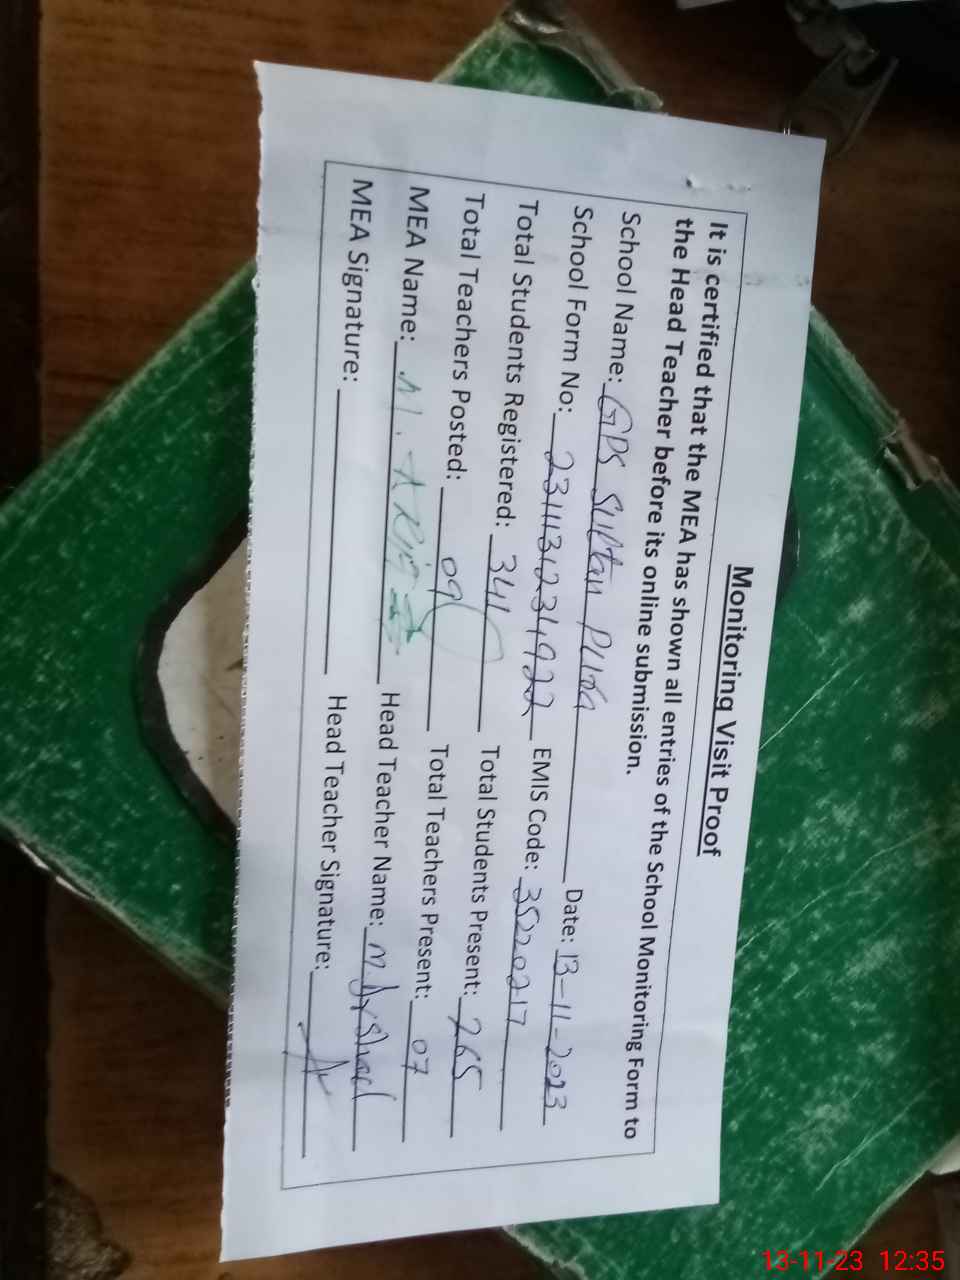 Monitoring Visit Proof
It is certified that the MEA has shown all entries of the School Monitoring Form to
the Head Teacher before its online submission.
School Name: GPS Sultan Pura Date: 13-11-2023
School Form No: 2311131231922 EMIS Code: 35220217
Total Students Registered: 341 Total Students Present: 265
Total Teachers Posted: 09 Total Teachers Present: 07
MEA Name: M. Head Teacher Name: M. Arshad
MEA Signature: Head Teacher Signature:
13-11-23 12:35